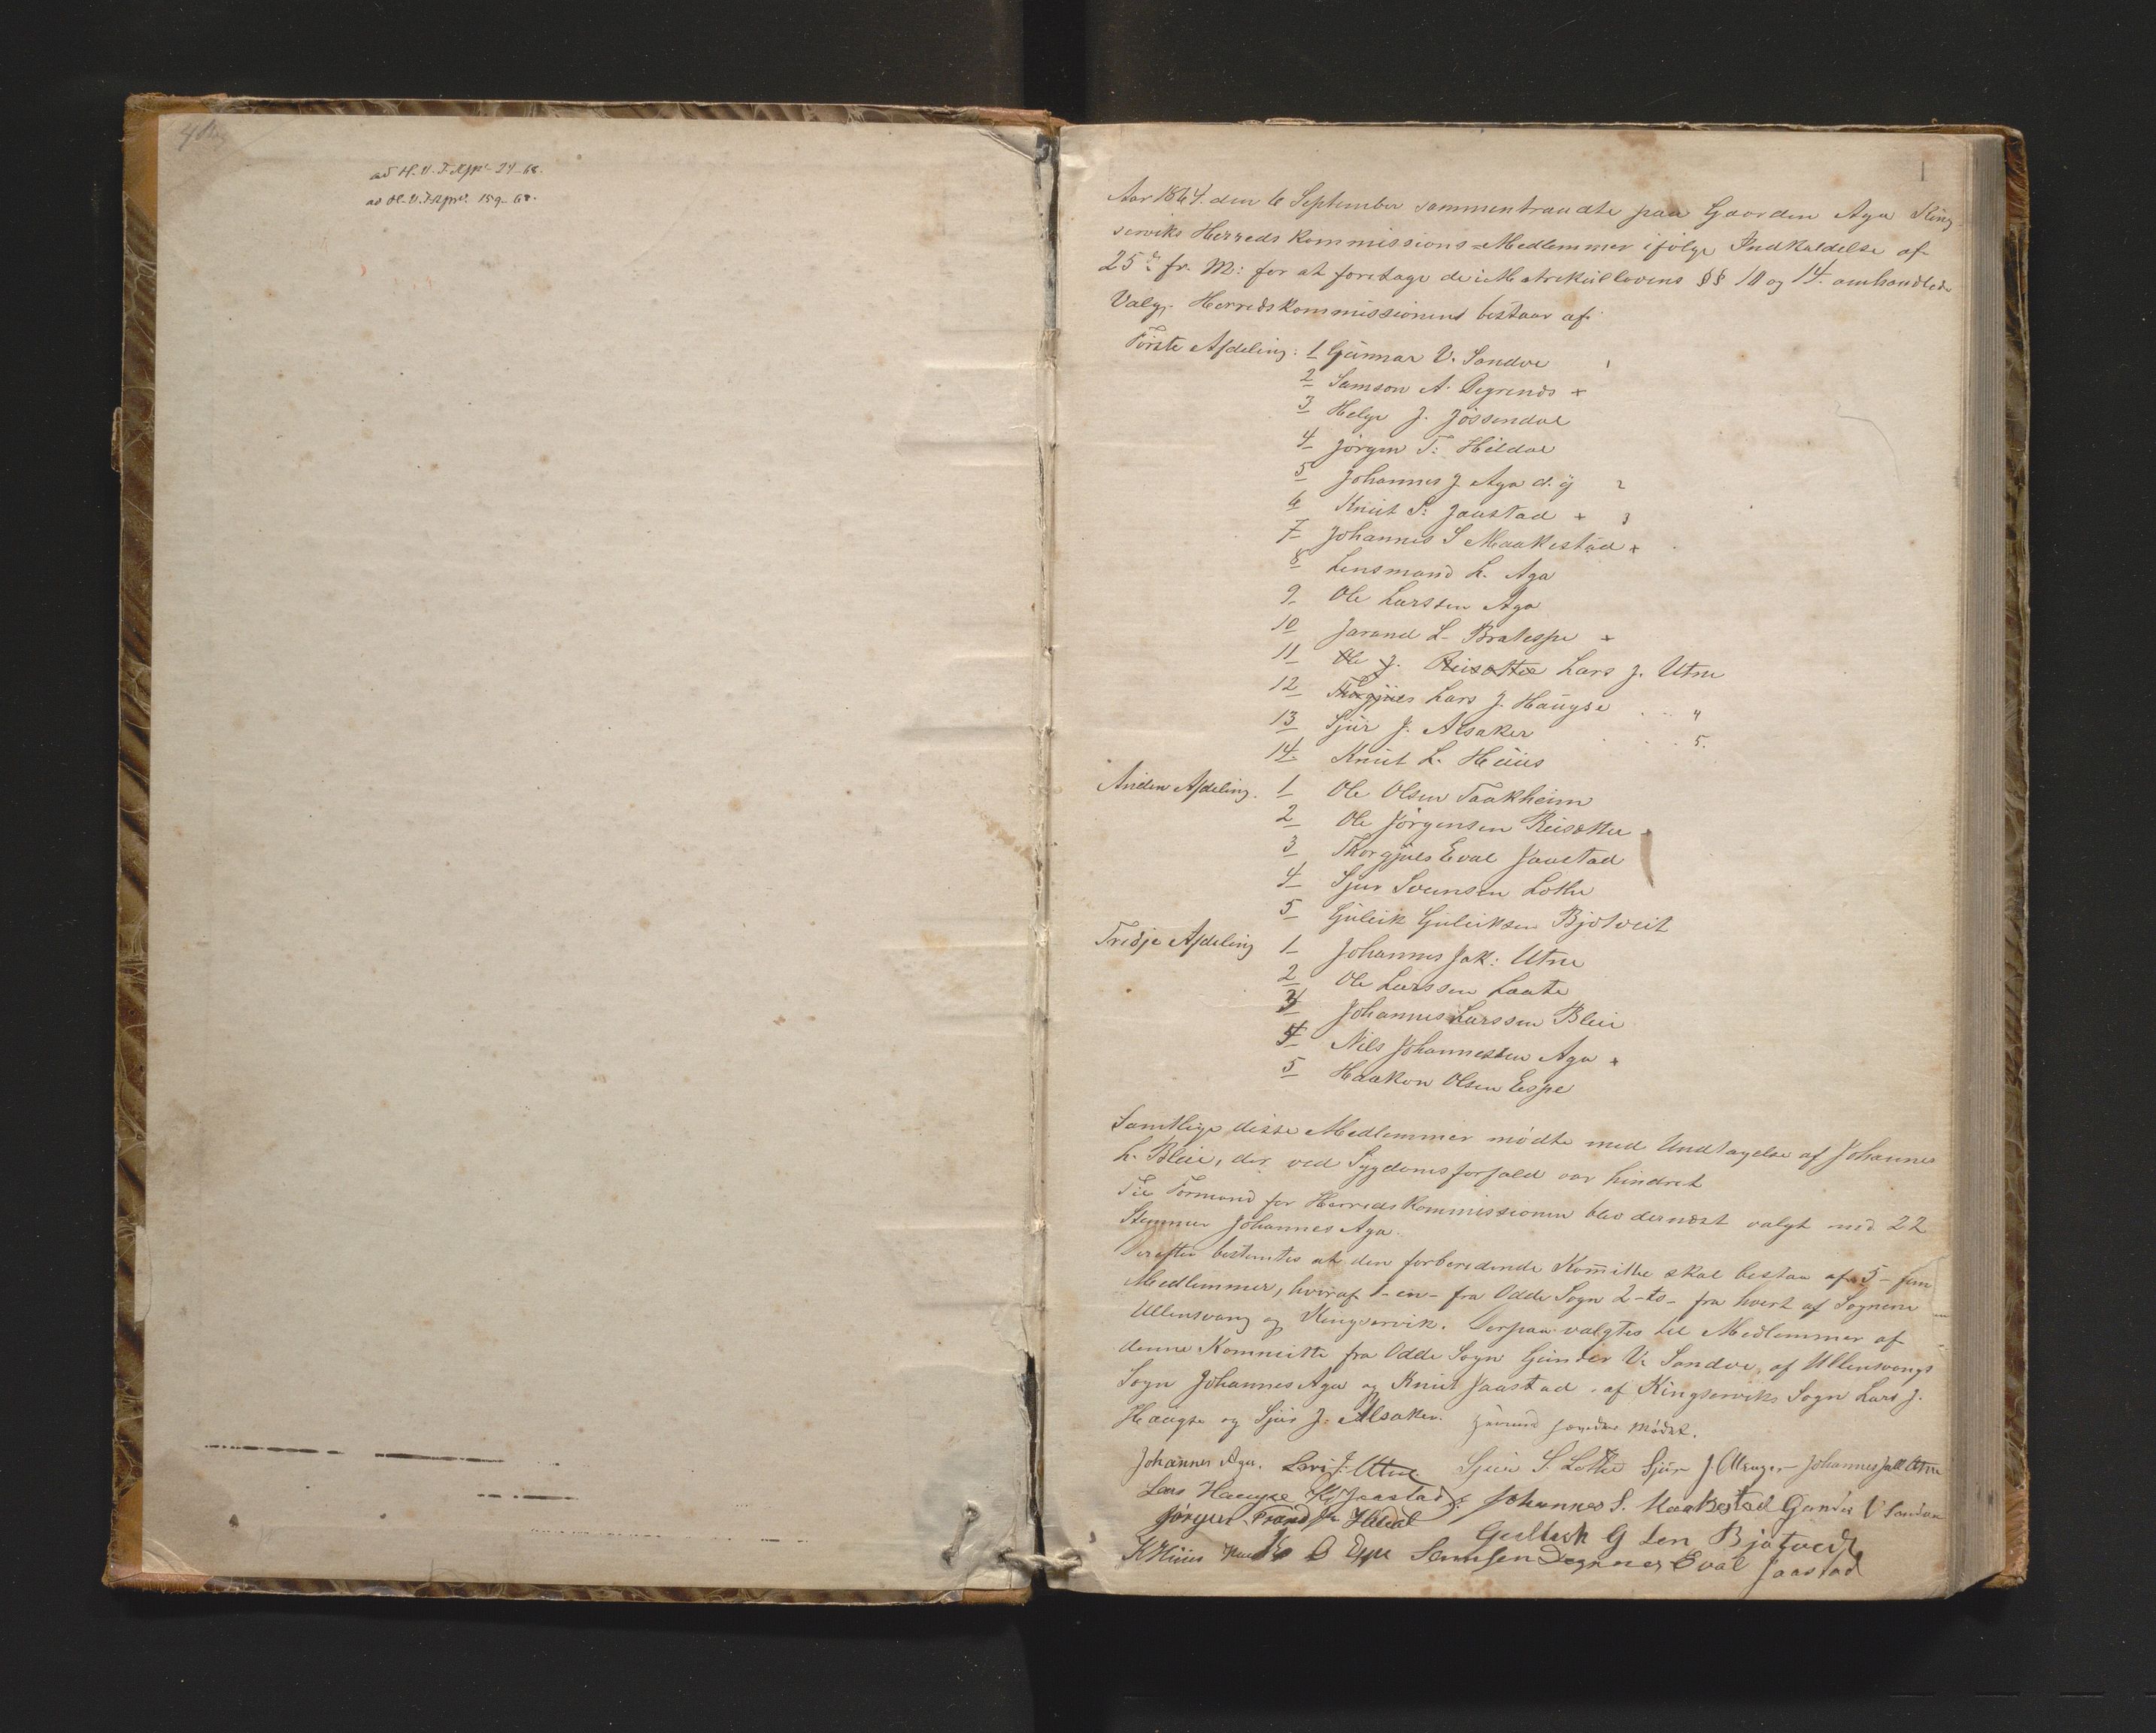 ad H. V. J. 24-68.
ad H. V. J. 159-68.
1
Aar 1864. den 6 September sammentraadte paa Gaarden Aga King-
serviks Herreds Kommissions-Medlemmer ifølge Indkaldelse af
25de fr. M: for at foretage de i Matrikullovens §§ 10 og 14. omhandlede
Valg. Herredskommissionens bestaar af:
Første Afdeling: 1 Günnar V. Sandve 1
2 Samson A. Degrenæs +
3 Helge J. Jøssendal
4 Jørgen T: Hildal
5 Johannes J Aga d. y 2
6 Knüt S: Jaastad + 3
7 Johannes S Maakestad +
8 Lensmand L. Aga
9 Ole Larssen Aga
10 Jarand L. Bratespe +
11 Ole J. Reisætter Lars J. Utne
12 Thorgjüls Lars J. Haugse 4
13 Sjür J. Alsaker 5.
14. Knüt L. Hüüs
Anden Afdeling. 1 Ole Olsen Taakheim
2 Ole Jørgensen Reisætter
3 Thorgjuls Eval Jaastad
4 Sjur Svensen Lothe
5 Güleik Güleiksen Bjotveit
Tredje Afdeling 1 Johannes Jak: Utne
2 Ole Larssen Laate
3 Johannes Larssen Bleie
4 Nils Johannessen Aga +
5 Haakon Olsen Espe
Samtlige disse Medlemmer mødte med Undtagelse af Johannes
L. Bleie, der ved Sygdomsforfald var hindret
Til Formand for Herredskommissionen blev dernæst valgt med 22
Stemmer Johannes Aga.
Derefter bestemtes at den forberedende Komitte skal bestaa af 5 - fem
Medlemmer, hvoraf 1 - en - fra Odde Sogn 2 - to - fra hvert af Sognene
Ullensvang og Kingservik. Derpaa valgtes til Medlemmer af
denne Kommitte fra Odde Sogn Günder V. Sandve, af Ullensvangs
Sogn Johannes Aga og Knüt Jaastad, af Kingserviks Sogn Lars J.
Haugse og Sjür J. Alsaker. mødet.
Johannes Aga. Lars J. Utne. Sjur S. Lothe Sjür J Alsager Johannes Jak Utne
Lars Haugse K S Jaastad: Johannes S. Maakestad Gunder V Sandve
Jørgen Trond sen Hildal Gulleik G sen Bjotvedt
K Hüüs O Espe Samsen Degrenes Eval Jaastad